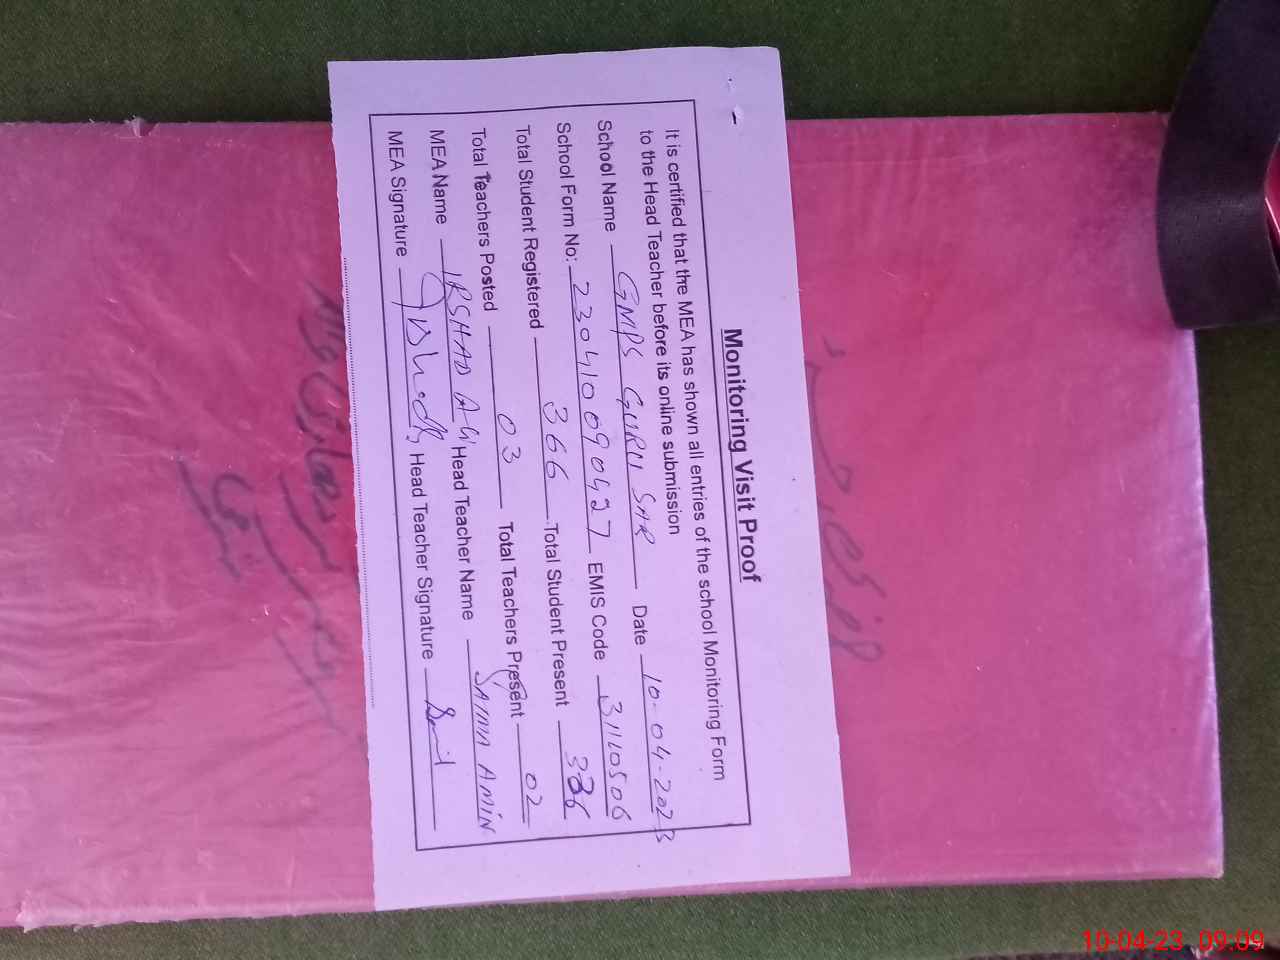 Monitoring Visit Proof
It is certified that the MEA has shown all entries of the school Monitoring Form
to the Head Teacher before its online submission
School Name GMPS GURU SAR Date 10-04-2023
School Form No: 230410090427 EMIS Code 31110506
Total Student Registered 366 Total Student Present 336
Total Teachers Posted 03 Total Teachers Present 02
MEA Name IRSHAD Ali Head Teacher Name SAMIA AMIN
MEA Signature Head Teacher Signature
10-04-23 09:09